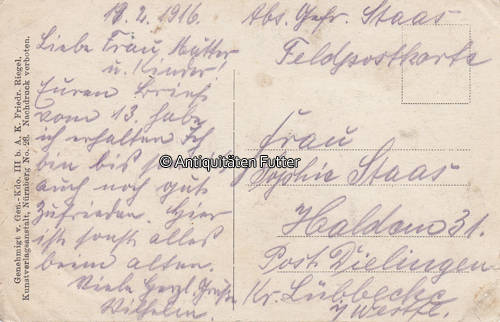 18.2.1916.
Liebe Frau Mutter
u. Kinder!
Euren Brief
vom 13. habe
ich erhalten Ich
bin bis
auch noch gut
zufrieden. Hier
ist sonst alles
beim alten.
Viele Herzl. Grüße
Wilhelm.
Abs. Gefr. Staas
Feldpostkarte
Frau
Sophie Staas
Haldem 31.
Post Dielingen
Kr. Lübbecke
i/Westf.
Genehmigt v. Gen.-Kdo. III b. A. K. Friedr. Riegel,
Kunstverlagsanstalt, Nürnberg No. 26. Nachdruck verboten.
© Antiquitäten Futter